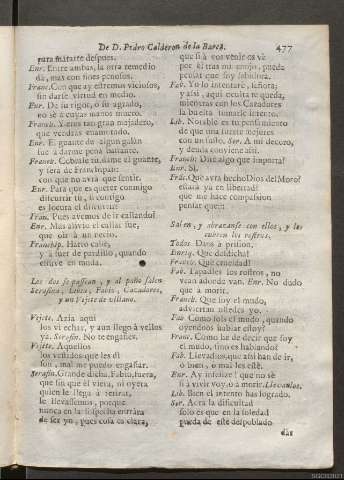 De D. Pedro Calderon de la Barca. 477
para matarte despues.
Enr. Entre ambas, la otra remedio
dà, mas con fines penosos.
Franc. Con que ay estremos viciosos,
sin darse virtud en medio.
Enr. De su rigor, ò su agrado,
no sè à cuyas manos muero.
Franch. Y eres tan gran majadero,
que vendràs enamorado.
Enr. El guante de algun galàn
fuè à darme pena bastante.
Franch. Ceboale tù, dame el guante,
y serà de Franchipan:
con que no avrà que sentir.
Enr. Para que es querer conmigo
discurrir tù, si contigo
es locura el discurrir?
Fran. Pues avemos de ir callando?
Enr. Mas alivio el callar fue,
que oìr à un necio.
Franchip. Harto cabe,
y à fuer de pardillo, quando
estuve en muda.
Los dos se passean, y al paño salen
Serafina, Libia, Fabio, Cazadores,
y un Vejete de villano.
Vejete. Azia aqui
los vì echar, y aun llegò à vellos
ya. Serafin. No te engañes.
Vejete. Aquellos
los vestidos que les dì
son, mal me puedo engañar.
Serafin. Grande dicha, Fabio, fuera,
que sin que èl viera, ni oyera
quien le llega à retirar,
le llevassemos, porque
nunca en la sospecha entràra
de ser yo, pues cosa es clara,
que si à vos venir os vè
por èl tras mi enojo, pueda
pensar que soy sabidora.
Fab. Yo lo intentarè, señora;
y assi, aqui oculta te queda,
mientras con los Cazadores
la buelta tomarle intento.
Lib. Notable es tu pensamiento
de que una suerte mejores
con un susto. Ser. A mi decoro,
y deuda conviene assi.
Franch. Dirè algo que importa?
Enr. Sì.
Frãc. Què avrà hecho Dios del Moro?
estarà ya en libertad?
que me hace compassion
pensar que::-
Salen, y abrazanse con ellos, y les
cubren los rostros.
Todos. Daos à prision.
Enriq. Què desdicha!
Franch. Què crueldad!
Fab. Tapadles los rostros, no
vean adonde van. Enr. No dudo
que à morir.
Franch. Que soy el mudo,
adviertan ustedes yo.
Fab. Como sois el mudo, quando
oyendoos hablar estoy?
Franc. Como he de decir que soy
el mudo, sino es hablando?
Fab. Llevadlos, que assi han de ir,
ò bien, o mal les estè.
Enr. Ay infelize! que no sè
si à vivir voy, ò à morir. Llevanlos.
Lib. Bien el intento has logrado.
Ser. Aora la dificultad
solo es que en la soledad
pueda de este despoblado
dar